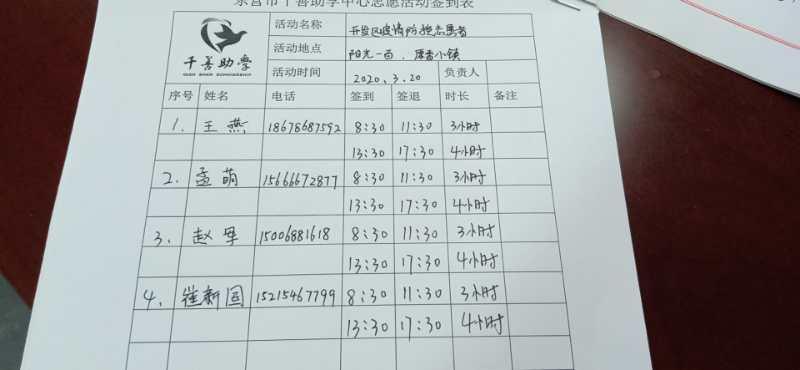 东营市千善助学中心志愿活动签到表
千善助学
活动名称 开发区疫情防控志愿者
活动地点 阳光一百、康居小镇
活动时间 2020、3.20 负责人
序号 姓名 电话 签到 签退 时长 备注
1. 王燕 18678687592 8:30 11:30 3小时
13:30 17:30 4小时
2. 孟萌 15666672877 8:30 11:30 3小时
13:30 17:30 4小时
3、 赵军 15006881618 8:30 11:30 3小时
13:30 17:30 4小时
4、 崔新国 15215467799 8:30 11:30 3小时
13:30 17:30 4小时